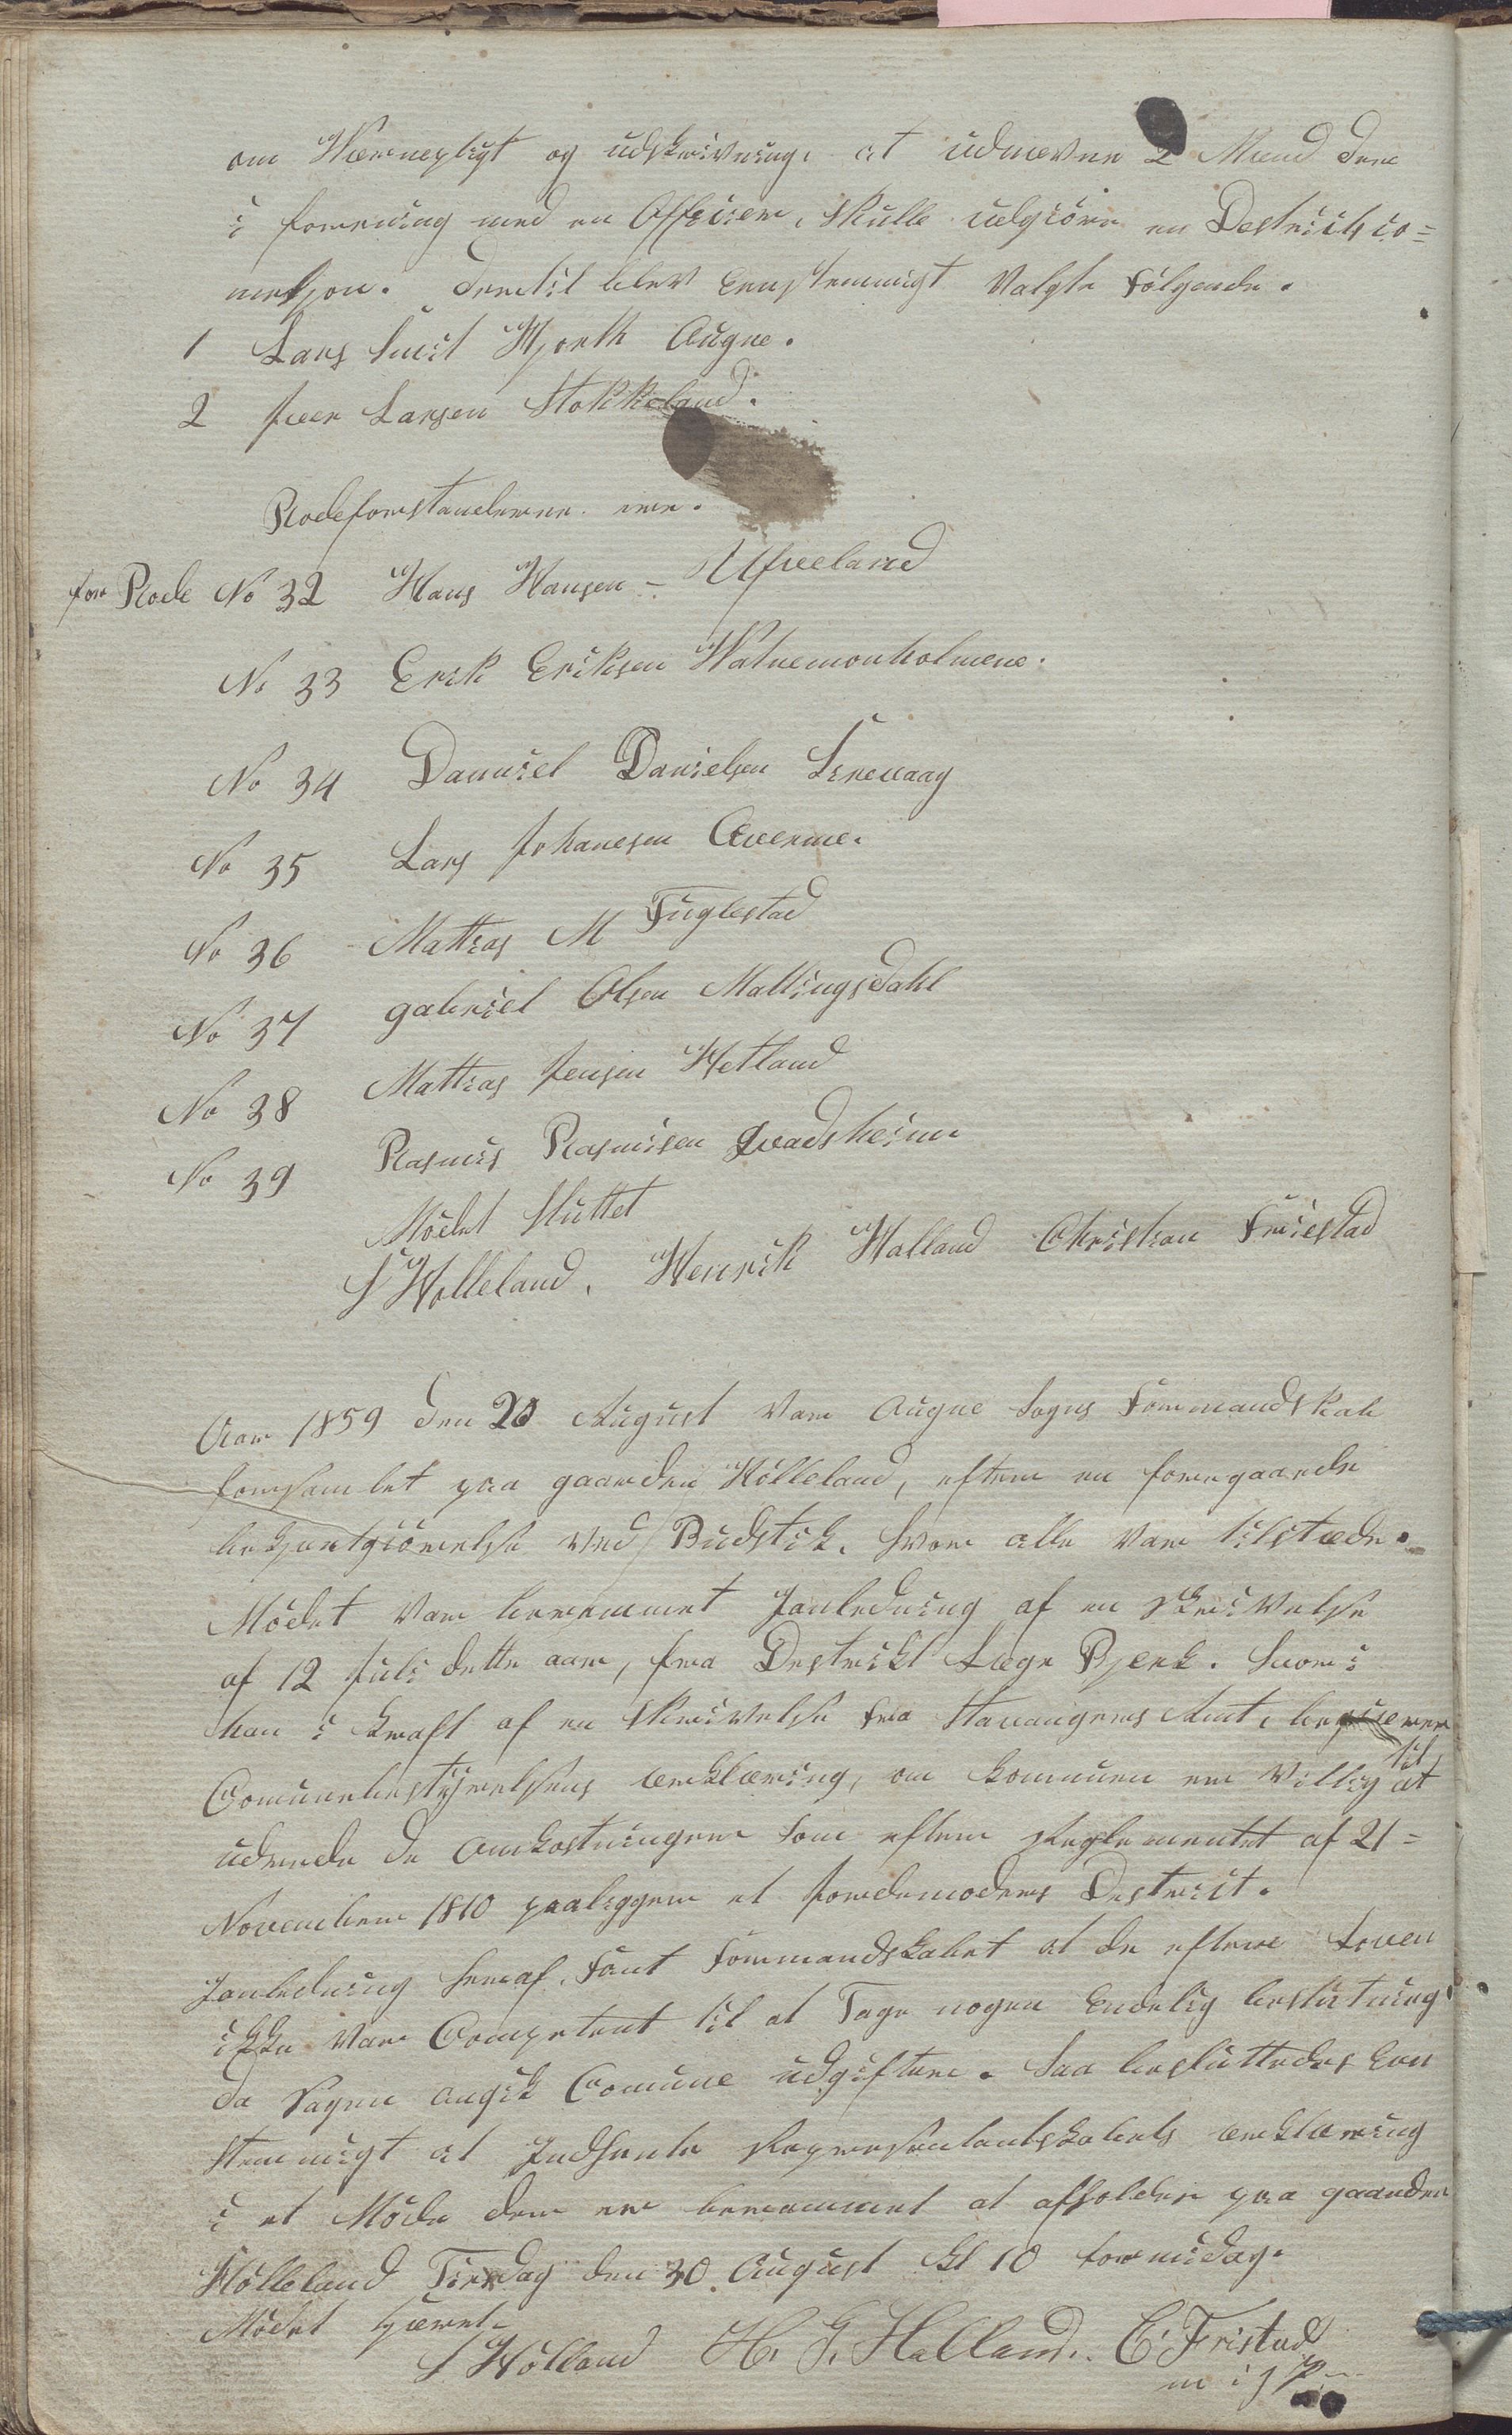 om Wærnepligt og udskrivning, at udnævne 2 Mænd der
i forening med en Officier, skulle udgiöre en Destricts co=
mesjon. Dertil blev Eenstemmigt Valgte Følgende.
1 Lars Hjorth Augne.
2 Peer Larsen Stokkeland.
Rodeforstanderne ere.
for Rode No 32 Hans Hansen - Ufveeland
No 33 Erik Eriksen Watnemonholmene.
No 34 Danniel Danielsen Sirevaag
No 35 Lars Johanesen Qverme.
No 36 Mattias M Fuglestad
No 37 gabriel Olsen Mattingsdahl
No 38 Mattias Jensen Hetland
No 39 Rasmus Rasmusen Qvadsheim
Mödet Sluttet
S Hölleland. Henrik Halland Christian Friestad
Aar 1859 den 20 August Var Augne Sogns Formandskab
forsamlet paa gaarden Hölleland, efter en foregaaende
bekjentgiörelse ved Budstik, hvor alle var tilstæde.
Mödet Var berammet Janledning af en skrivelse
af 12 Juli dette aar, fra Destrikt Læge Bjerk. hvori
han i kraft af en Skrivelse fra Stavangers Amt, begjærer
Comunebestyrelsens ærklæring, om kommunen er Villig til at
udrede de omkostninger som efter Reglementet af 21=
November 1810 paaligger et Jordemoders Destrict.
Janledning heraf, fant Formandskabet at de eftere Loven
ikke var Competent til at Tage nogen Endelig beslutning,
da sagen angik Comune udgiftere. Saa besluttedes Een
stemmigt at Indhente Repræsentantskabets ærklæring
i et Möde der er berammet at afholdes paa gaarden
Hölleland Tirsdag den 30. August Kl 10 formidag.
Mödet hævet-
S Hölland H. G. Halland. C. Fristad
m i P